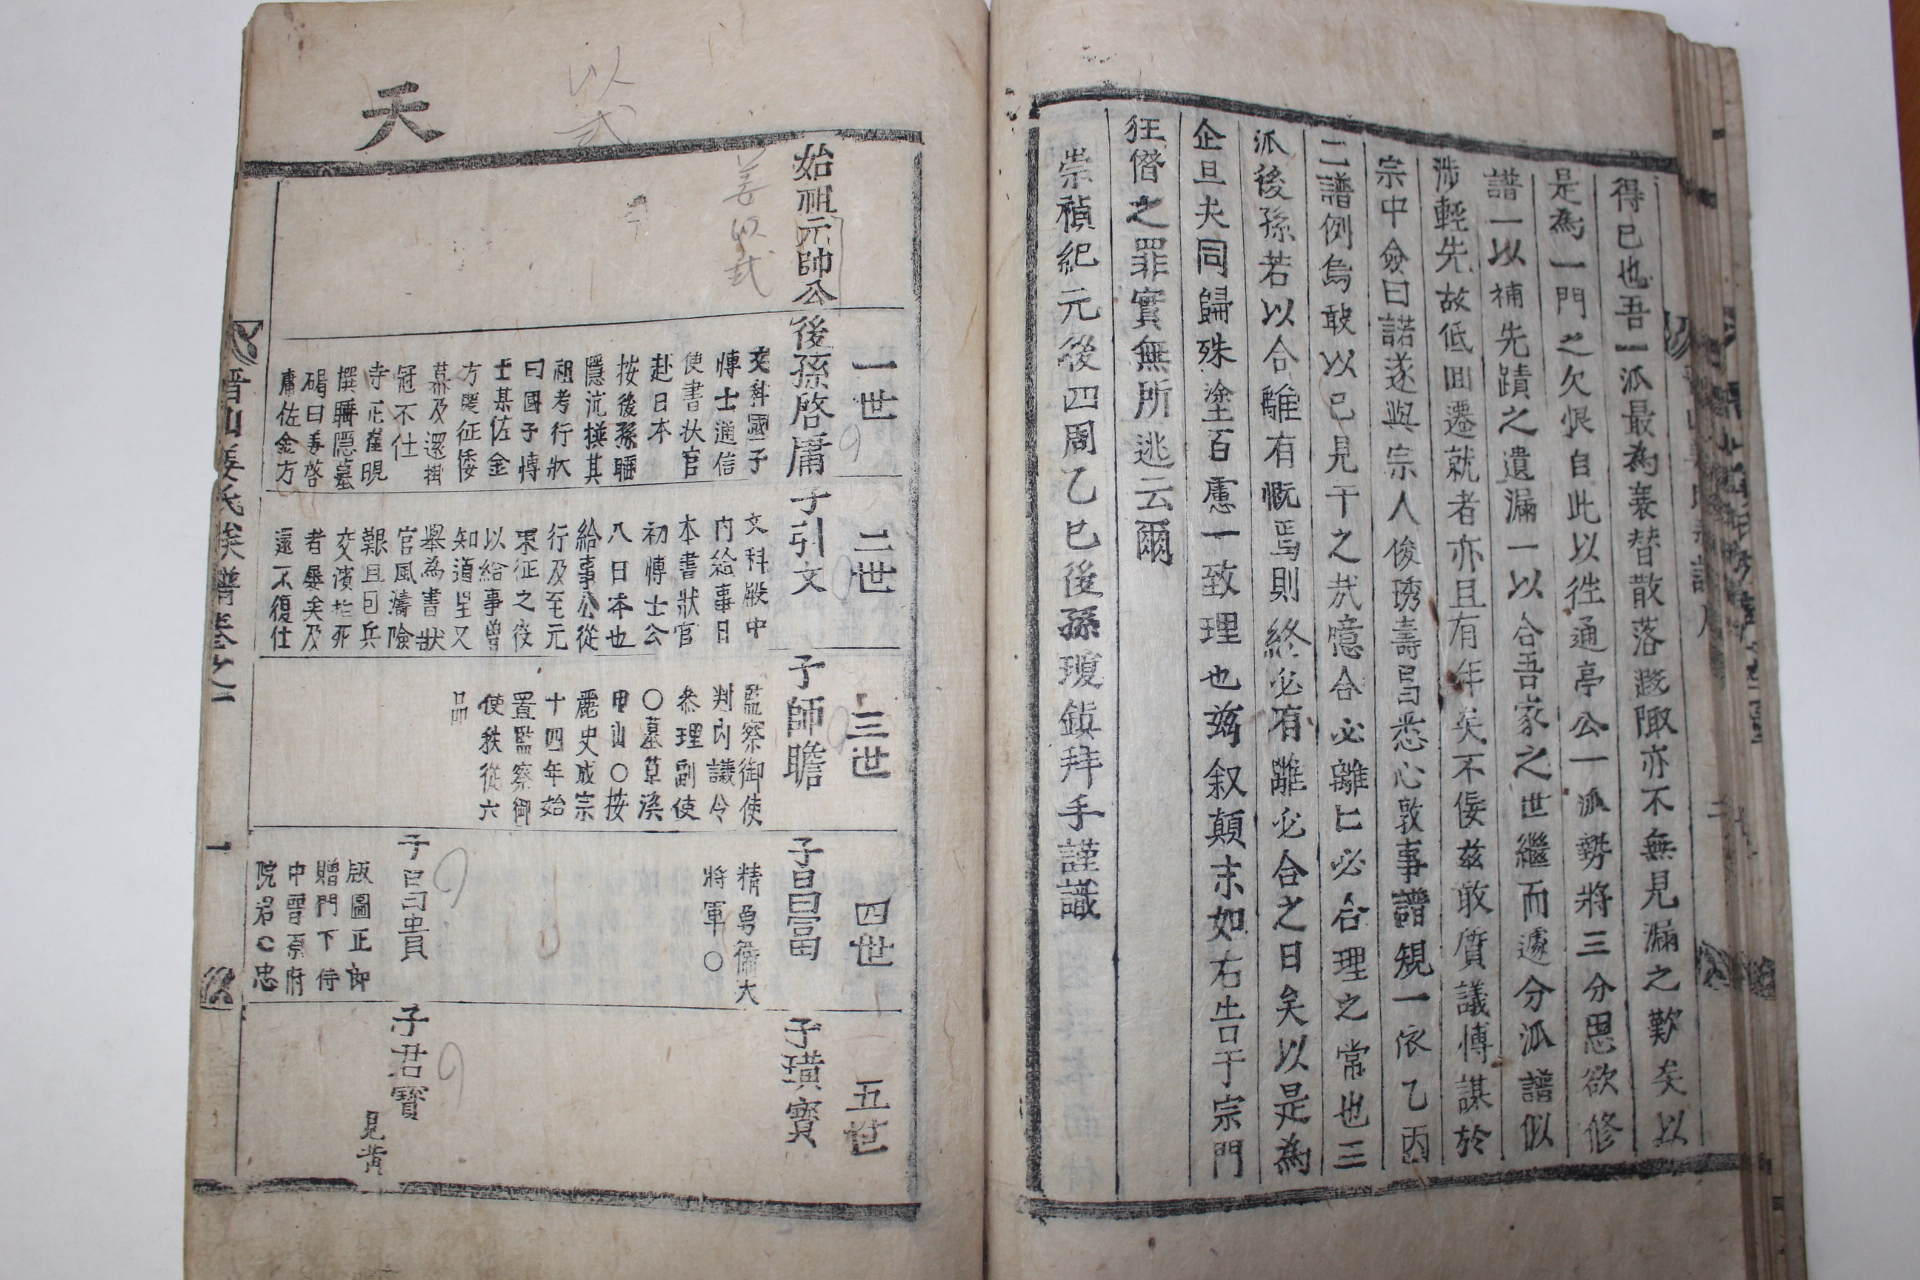 得已也吾一派最爲衰替散落遐陬亦不無見漏之歎矣以
是爲一門之欠恨自此以徃通亭公一派勢將三分思欲修
譜一以補先蹟之遺漏一以合吾家之世繼而遽分派譜似
涉輕先故低回遷就者亦且有年矣不佞玆敢質議博謀於
宗中僉曰諾遂與宗人俊琇壽昌悉心敦事譜規一依乙丙
二譜例烏敢以已見干之哉噫合必離匕必合理之常也三
派後孫若以合離有慨焉則終必有離必合之日矣以是爲
企且夫同歸殊塗百慮一致理也玆叙顛末如右告于宗門
狂僭之罪實無所逃云爾
崇禎紀元後四周乙巳後孫瓊鎭拜手謹識
天
以式
姜以式
始祖元帥公後孫啓庸
子引文
子師瞻
子昌富
子璜寶
一世
二世
三世
四世
五世
文科國子
博士通信
使書狀官
赴日本
按後孫睡
隱沆撰其
祖考行狀
曰國子博
士某佐金
方慶征倭
幕及還掛
冠不仕
寺正崔晛
撰睡隱墓
碣曰姜啓
庸佐金方
文科殿中
內給事日
本書狀官
初博士公
八日本也
給事公從
行及至元
東征之役
以給事曾
知道里又
擧爲書狀
官風濤險
艱且回兵
交濱於死
者屢矣及
還不復仕
監察御使
判內議令
叅理副使
〇墓草溪
甲山〇按
麗史成宗
十四年始
置監察御
使秩從六
品
精勇衛大
將軍〇
子昌貴
版圖正郎
贈門下侍
中晋原府
院君〇忠
子君寶
見黃
晋山姜氏族譜卷之一
一